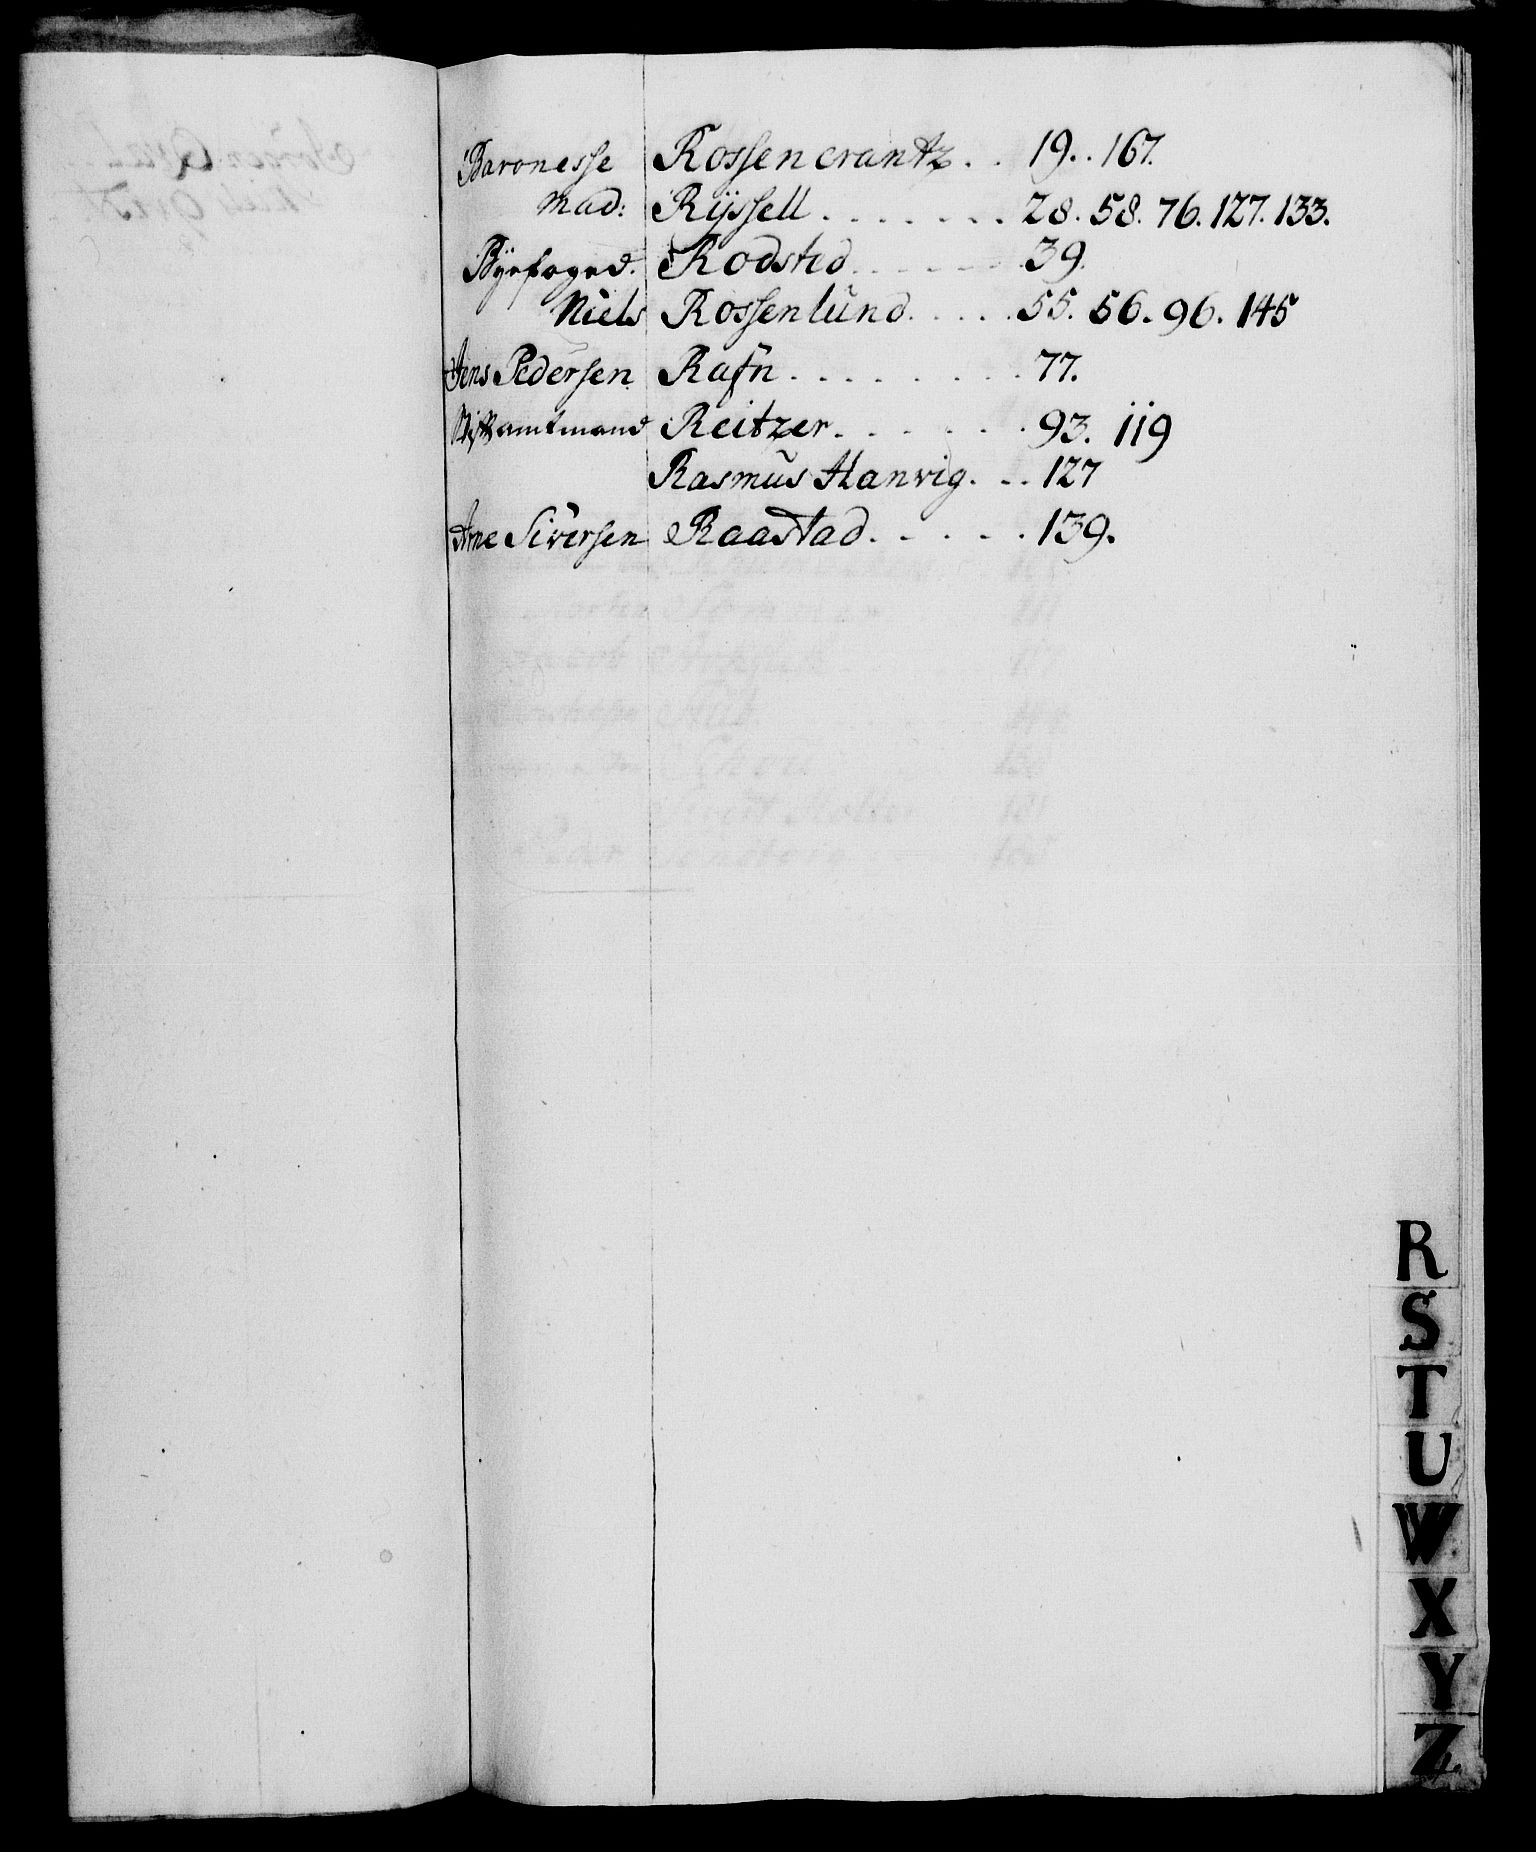 Baronesse Rossencrantz. . 19. . 167.
Mad: Rÿssell . . . . . . . 28. 58. 76. 127. 133.
Bÿefoged. Rodsted . . . . . 39.
Niels Rossenlund. . . . . 55. 56. 96. 145
Jens Pedersen Rafn . . . . . . . . 77.
Stiftamtmand Reitzer. . . . . . . 93. 119
Rasmus Hanvig. . . 127
Arne Siversen Raastad. . . . . . 139.
R
S
T
U
W
X
Y
Z